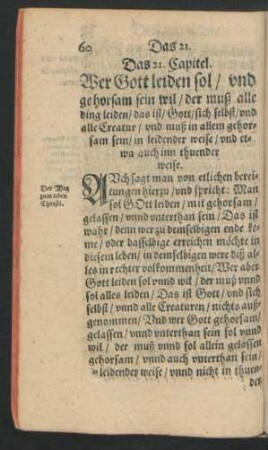 60 Das 21.
Das 21. Capitel.
Wer Gott leiden sol / vnd
gehorsam sein wil / der muß alle
ding leiden / das ist / Gott / sich selbst / vnd
alle Creatur / vnd muß in allein gehor-
sam sein / in leidender weise / vnd et-
wa auch inn thuender
weise.
AVch sagt man von etlichen berei-
tungen hierzu / vnd spricht: Man
sol GOtt leiden / mit gehorsam /
gelassen / vnnd vnterthan sein / Das ist
wahr / denn wer zu demselbigen ende ke-
me / oder dasselbige erreichen möchte in
diesem leben / in demselbigen were diß al-
les in rechter volkommenheit / Wer aber
Gott leiden sol vnnd wil / der muß vnnd
sol alles leiden / Das ist Gott / vnd sich
selbst / vnnd alle Creaturen / nichts auß-
genommen / Vnd wer Gott gehorsam /
gelassen / vnnd vnterthan sein sol vnnd
wil / der muß vnnd sol allein gelassen
gehorsam / vnnd auch vnterthan sein /
in leidender weise / vnnd nicht in thuen-
der
Der Weg
zum leben
Christi.